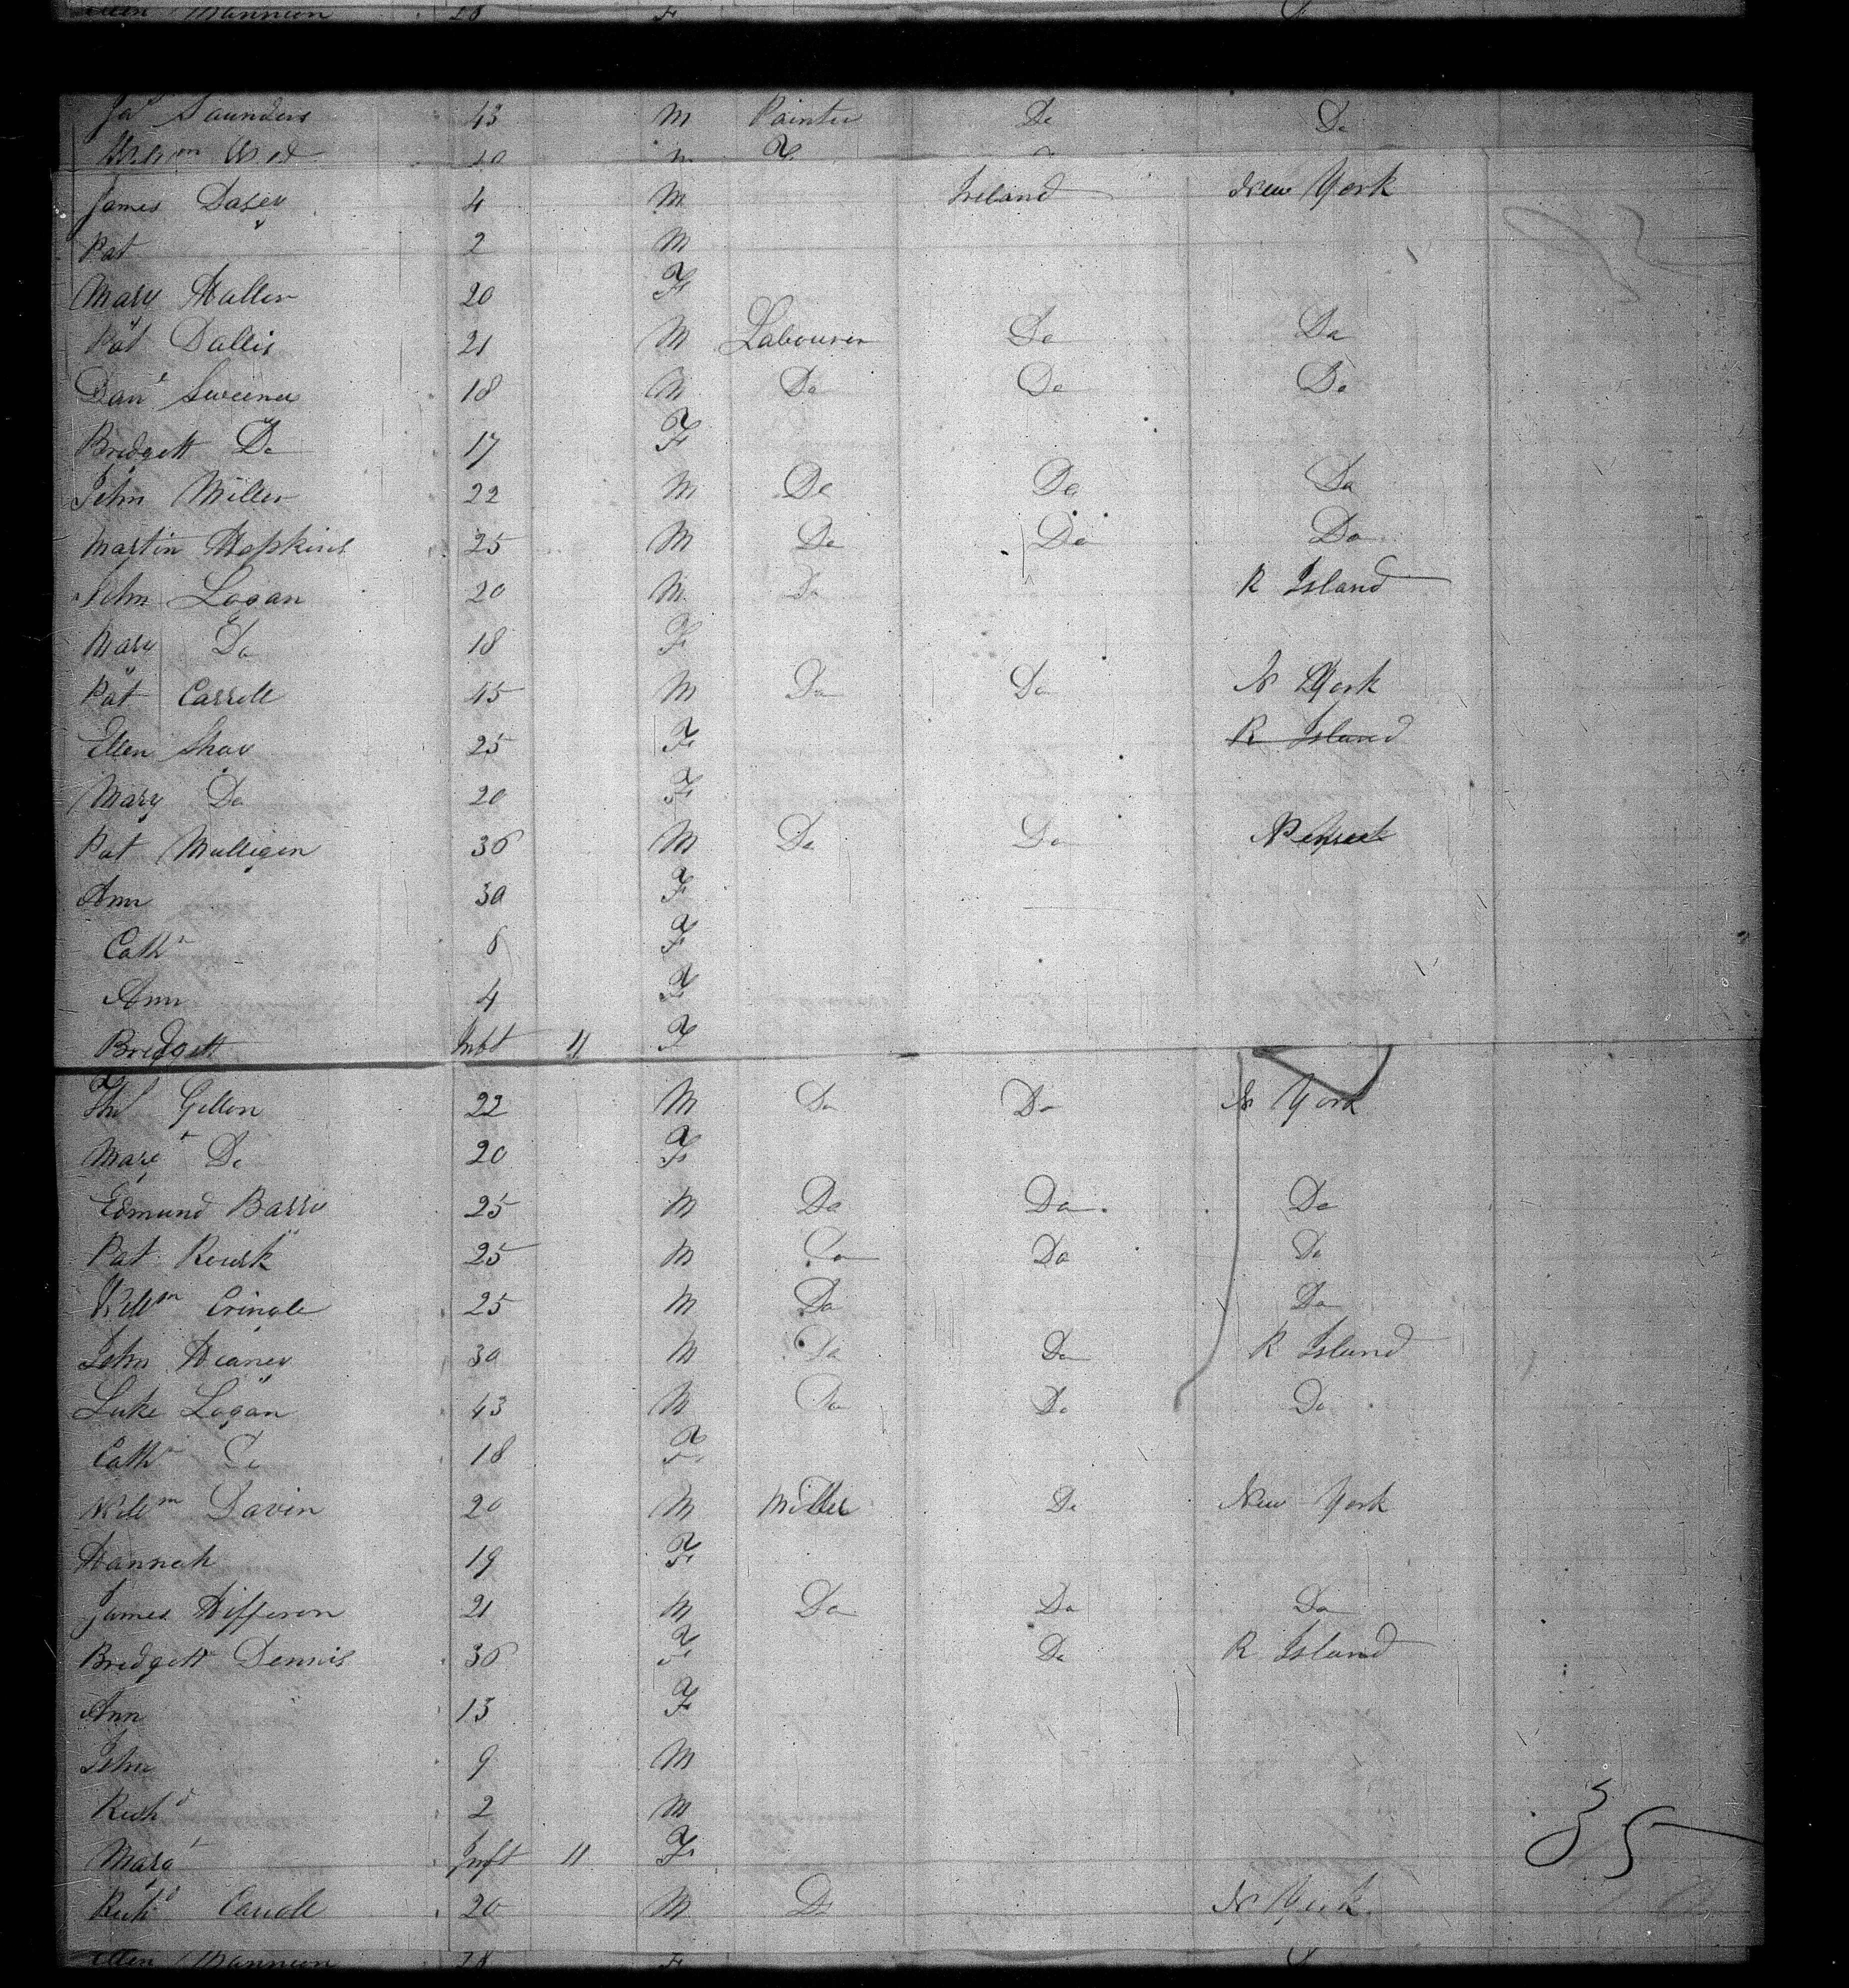 Ellen Mannion 28 F
Jas Saunders 43 M Painter Do Do
Willm 20 M
James Dasey 4 M Ireland New York
Pat 2 M
Mary Hallen 20 F
Pat Dallis 21 M Labourer Do Do
Danl Sweeney 18 M Do Do Do
Bridgett Do 17 F
John Miller 22 M Do Do Do
Martin Hopkins 25 M Do Do Do
John Logan 20 M Do R Island
Mary Do 18 F
Pat Carroll 45 M Do Do N York
Ellen Shay 25 F R Island
Mary Do 20 F
Pat Mulligan 36 M Do Do
Ann 30 F
Cathn 6 F
Ann 4 F
Bridgett Inft 11 F
Ths Gillon 22 M Do Do N York
Margt Do 20 F
Edmund Barry 25 M Do Do Do
Pat Rourk 25 M Do Do Do
Willm Cringle 25 M Do Do
John Heaney 30 M Do Do R Island
Luke Logan 43 M Do Do Do
Cathn Do 18 F
Willm Davin 20 M Miller Do New York
Hannah 19 F
James Hifferon 21 M Do Do Do
Bridgett Dennis 36 F Do R Island
Ann 13 F
John 9 M
Richd 2 M
Margt Inft 11 F
35
Richd Carroll 20 M Do N York
Ellen Mannion 28 F